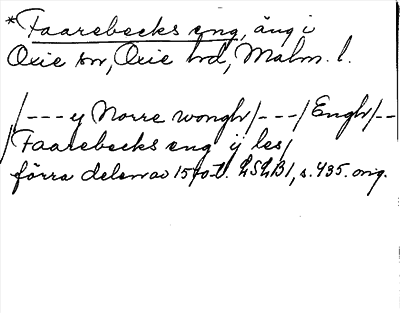 *Faarebecks eng, äng i
Oxie sn, Oxie hd, Malm. l.
/---y Norre wongh/---/Engh/--
/Faarebecks eng ij les/
förra delen av 1570-t. LSLB1, s. 435. orig.